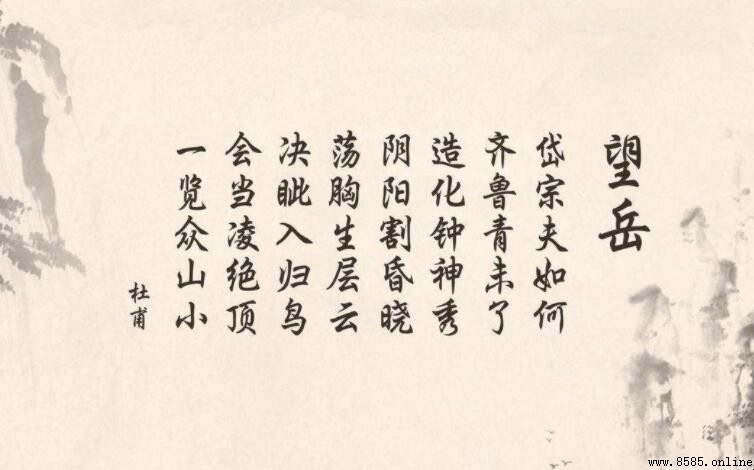 望岳
岱宗夫如何
齐鲁青未了
造化钟神秀
阴阳割昏晓
荡胸生层云
决眦入归鸟
会当凌绝顶
一览众山小
杜甫
www.8585.online